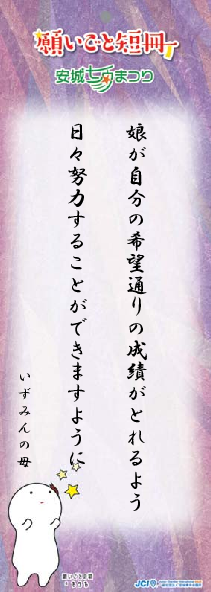 願いごと短冊
安城七夕まつり
娘が自分の希望通りの成績がとれるよう
日々努力することができますように
いずみんの母
願いごと短冊
JCI